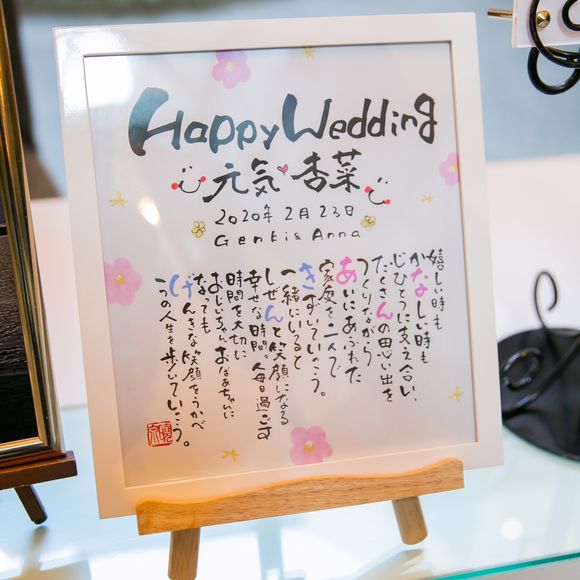 Happy Wedding
元気 杏菜
2020年2月23日
Genki & Anna
嬉しい時も
かなしい時も
心ひとつに支え合い、
たくさんの思い出を
つくりながら
あいにあふれた
家庭を二人で
きずいていこう。
一緒にいると
しぜんと笑顔になる
幸せな時間。毎日過ごす
時間を大切に
おじいちゃん、おばあちゃんに
なっても
げんきな笑顔をうかべ
一つの人生を歩んでいこう。